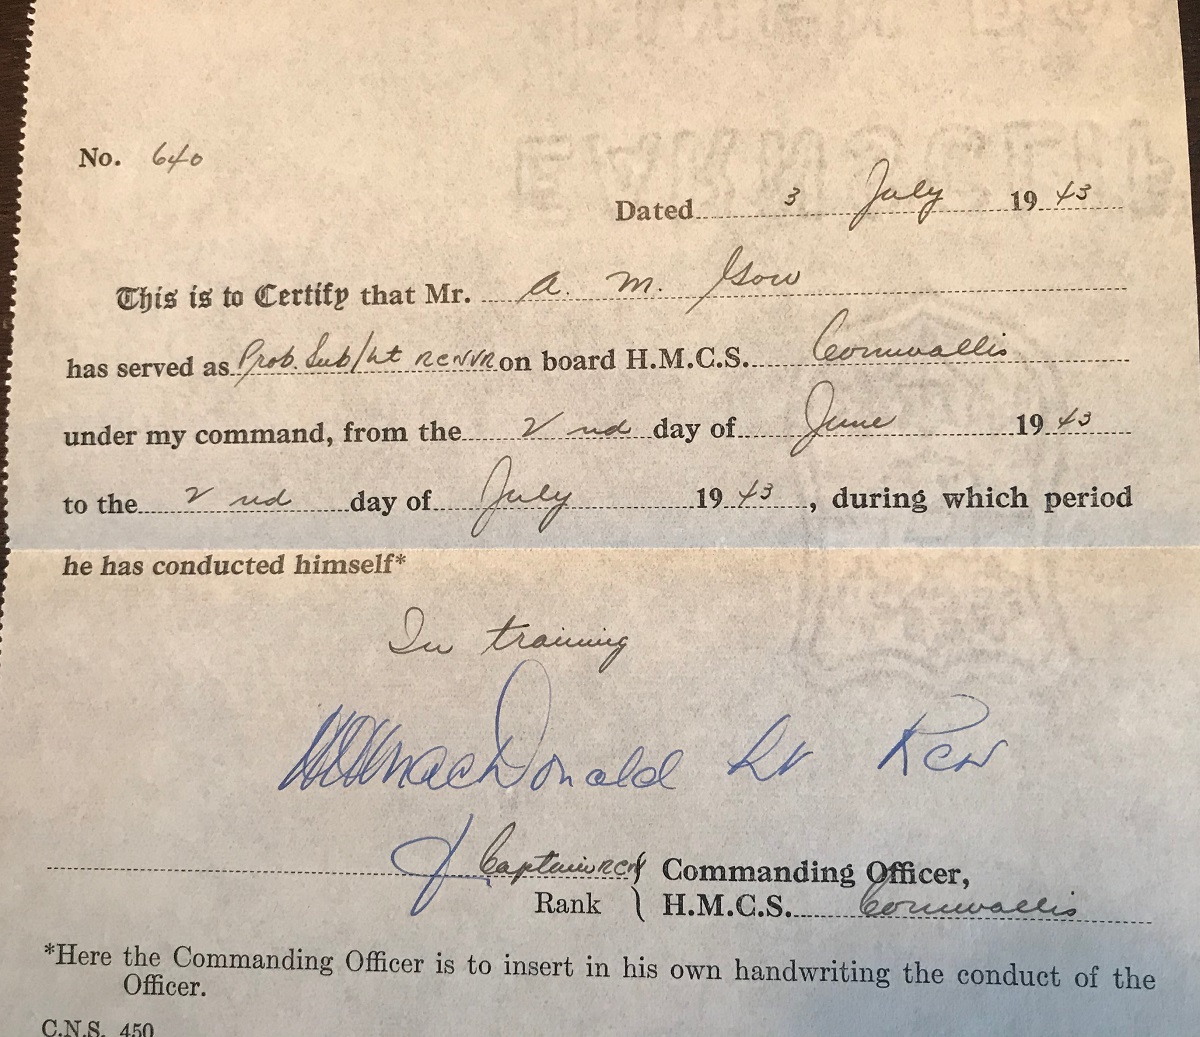 No. 640
Dated 3 July 19 43
This is to Certify that Mr. A. M. Gow
has served as Prob. Sub/Lt RCNVR on board H.M.C.S. Cornwallis
under my command, from the 2nd day of June 19 43
to the 2nd day of July 19 43, during which period
he has conducted himself*
In training
MacDonald Lt RCN
Captain RCN Commanding Officer,
Rank H.M.C.S. Cornwallis
*Here the Commanding Officer is to insert in his own handwriting the conduct of the
Officer.
C.N.S. 450